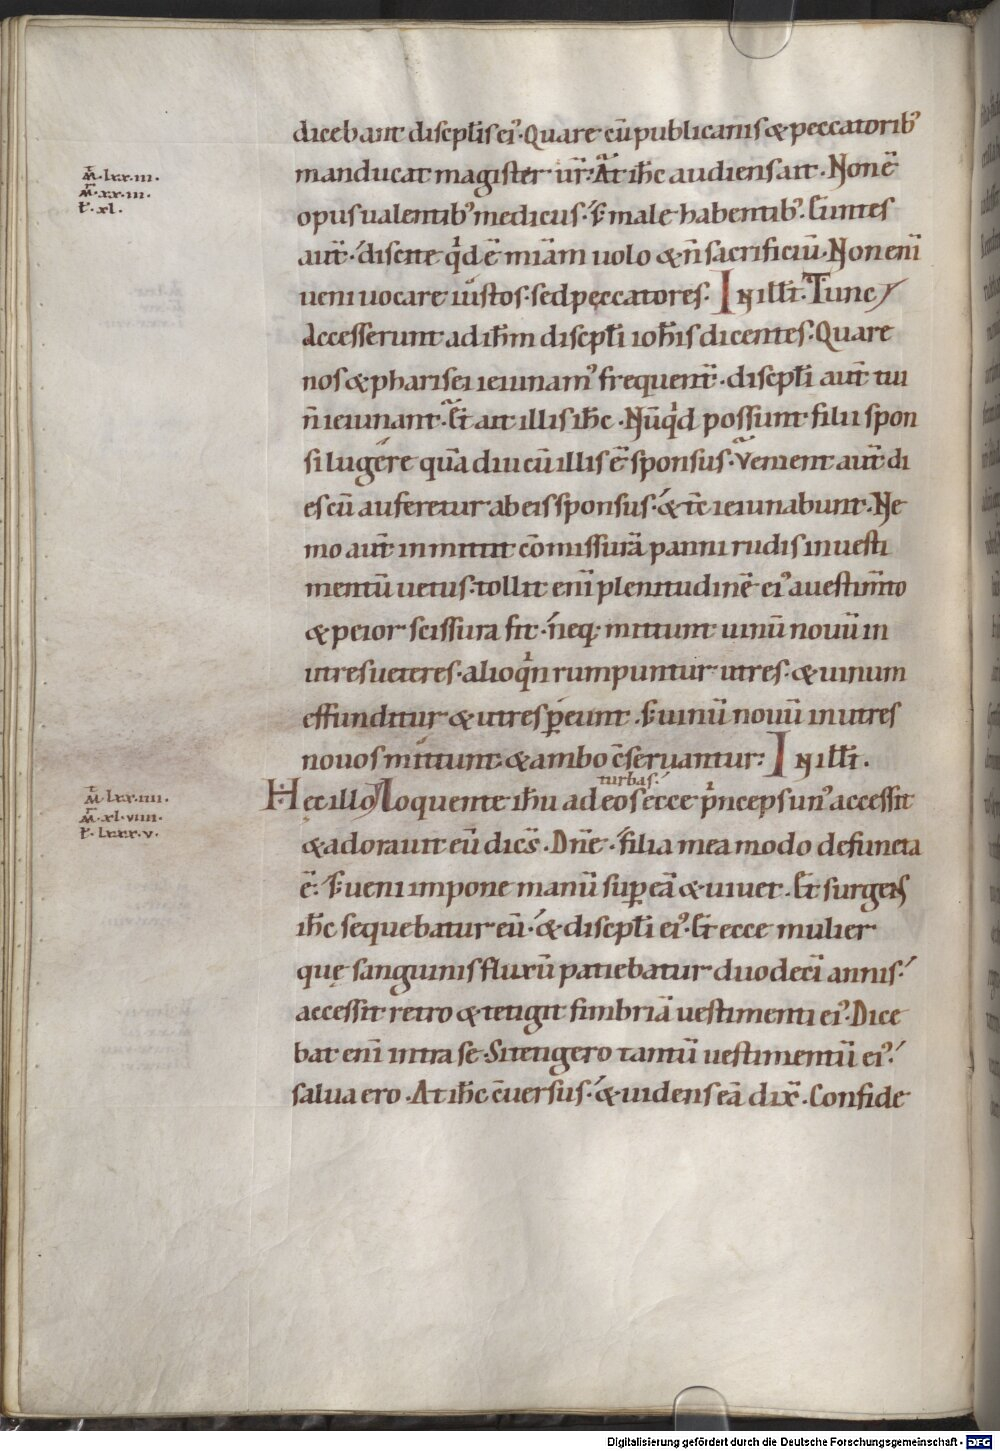 dicebant discpłis ei᾽. Quare cū publicanis & peccatorib᾽
m̄. lxx.iii.
manducat magister ur̄. At ih̄c audiens ait. Non ē
m̄. xx.iii.
ł. xl.
opus ualentib᾽ medicus. s; male habentib᾽. Euntes
aut̄. discite qͥd ē miām uolo & n̄ sacrificiū. Non eni
ueni uocare iustos. sed peccatores. In illł t̄. Tunc
Accesserunt ad ih̄m discpłi ioh̄is dicentes. Quare
nos & pharisei ieiunam᾽ frequent̄. discpłi aut̄ tui
n̄ ieiunant. Et ait illis ih̄c. Nūqͥd possunt filii spon
si lugere quādiu cū illis ē sponsus. Venient aut̄ di
es cū auferetur ab eis sponsus. & tc̄ ieiunabunt. Ne
mo aut̄ inmittit cōmissurā panni rudis in uesti
mentū uetus. tollit eni plenitudinē ei᾽ a uestim̄to
& peior scissura fit. neq; mittunt uinū nouū in
utres ueteres. alioqͥn rumpuntur utres. & uinum
effunditur & utres ꝑeunt. s; uinū nouū in utres
nouos mittunt. & ambo c̄seruantur. In illł t̄.
turbas.
Hec illo loquente ih̄u ad eos ecce pͥnceps un᾽ accessit
m̄. lxx.iiii.
m̄. xl.viiii.
ł. lxxx.v.
& adorauit eū dicēs. Dn̄e. filia mea modo defuncta
ē. s; ueni impone manū suꝑ eā & uiuet. Et surgens
ih̄c sequebatur eū. & discpłi ei᾽. Et ecce mulier
quę sanguinis fluxū patiebatur duodeci annis.
accessit retro & tetigit fimbriā uestimenti ei᾽. Dice
bat eni intra se. Si tetigero tantū uestimentū ei᾽.
salua ero. At ih̄c c̄uersus. & uidens eā dix̄. Confide
Digitalisierung gefördert durch die Deutsche Forschungsgemeinschaft - DFG